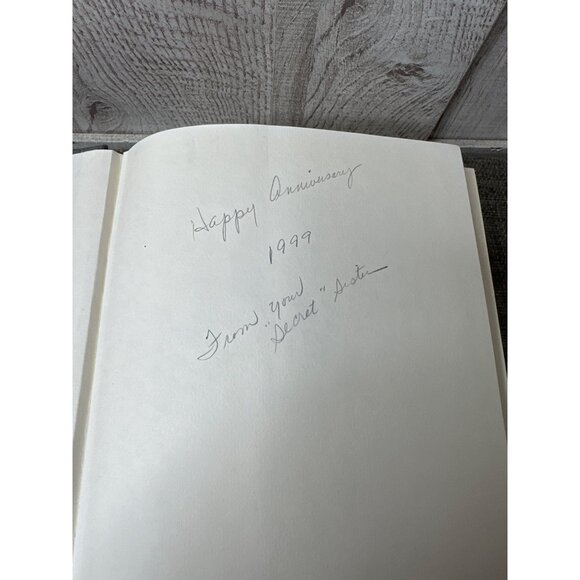 Happy Anniversary
1999
From your
"Secret" Sister